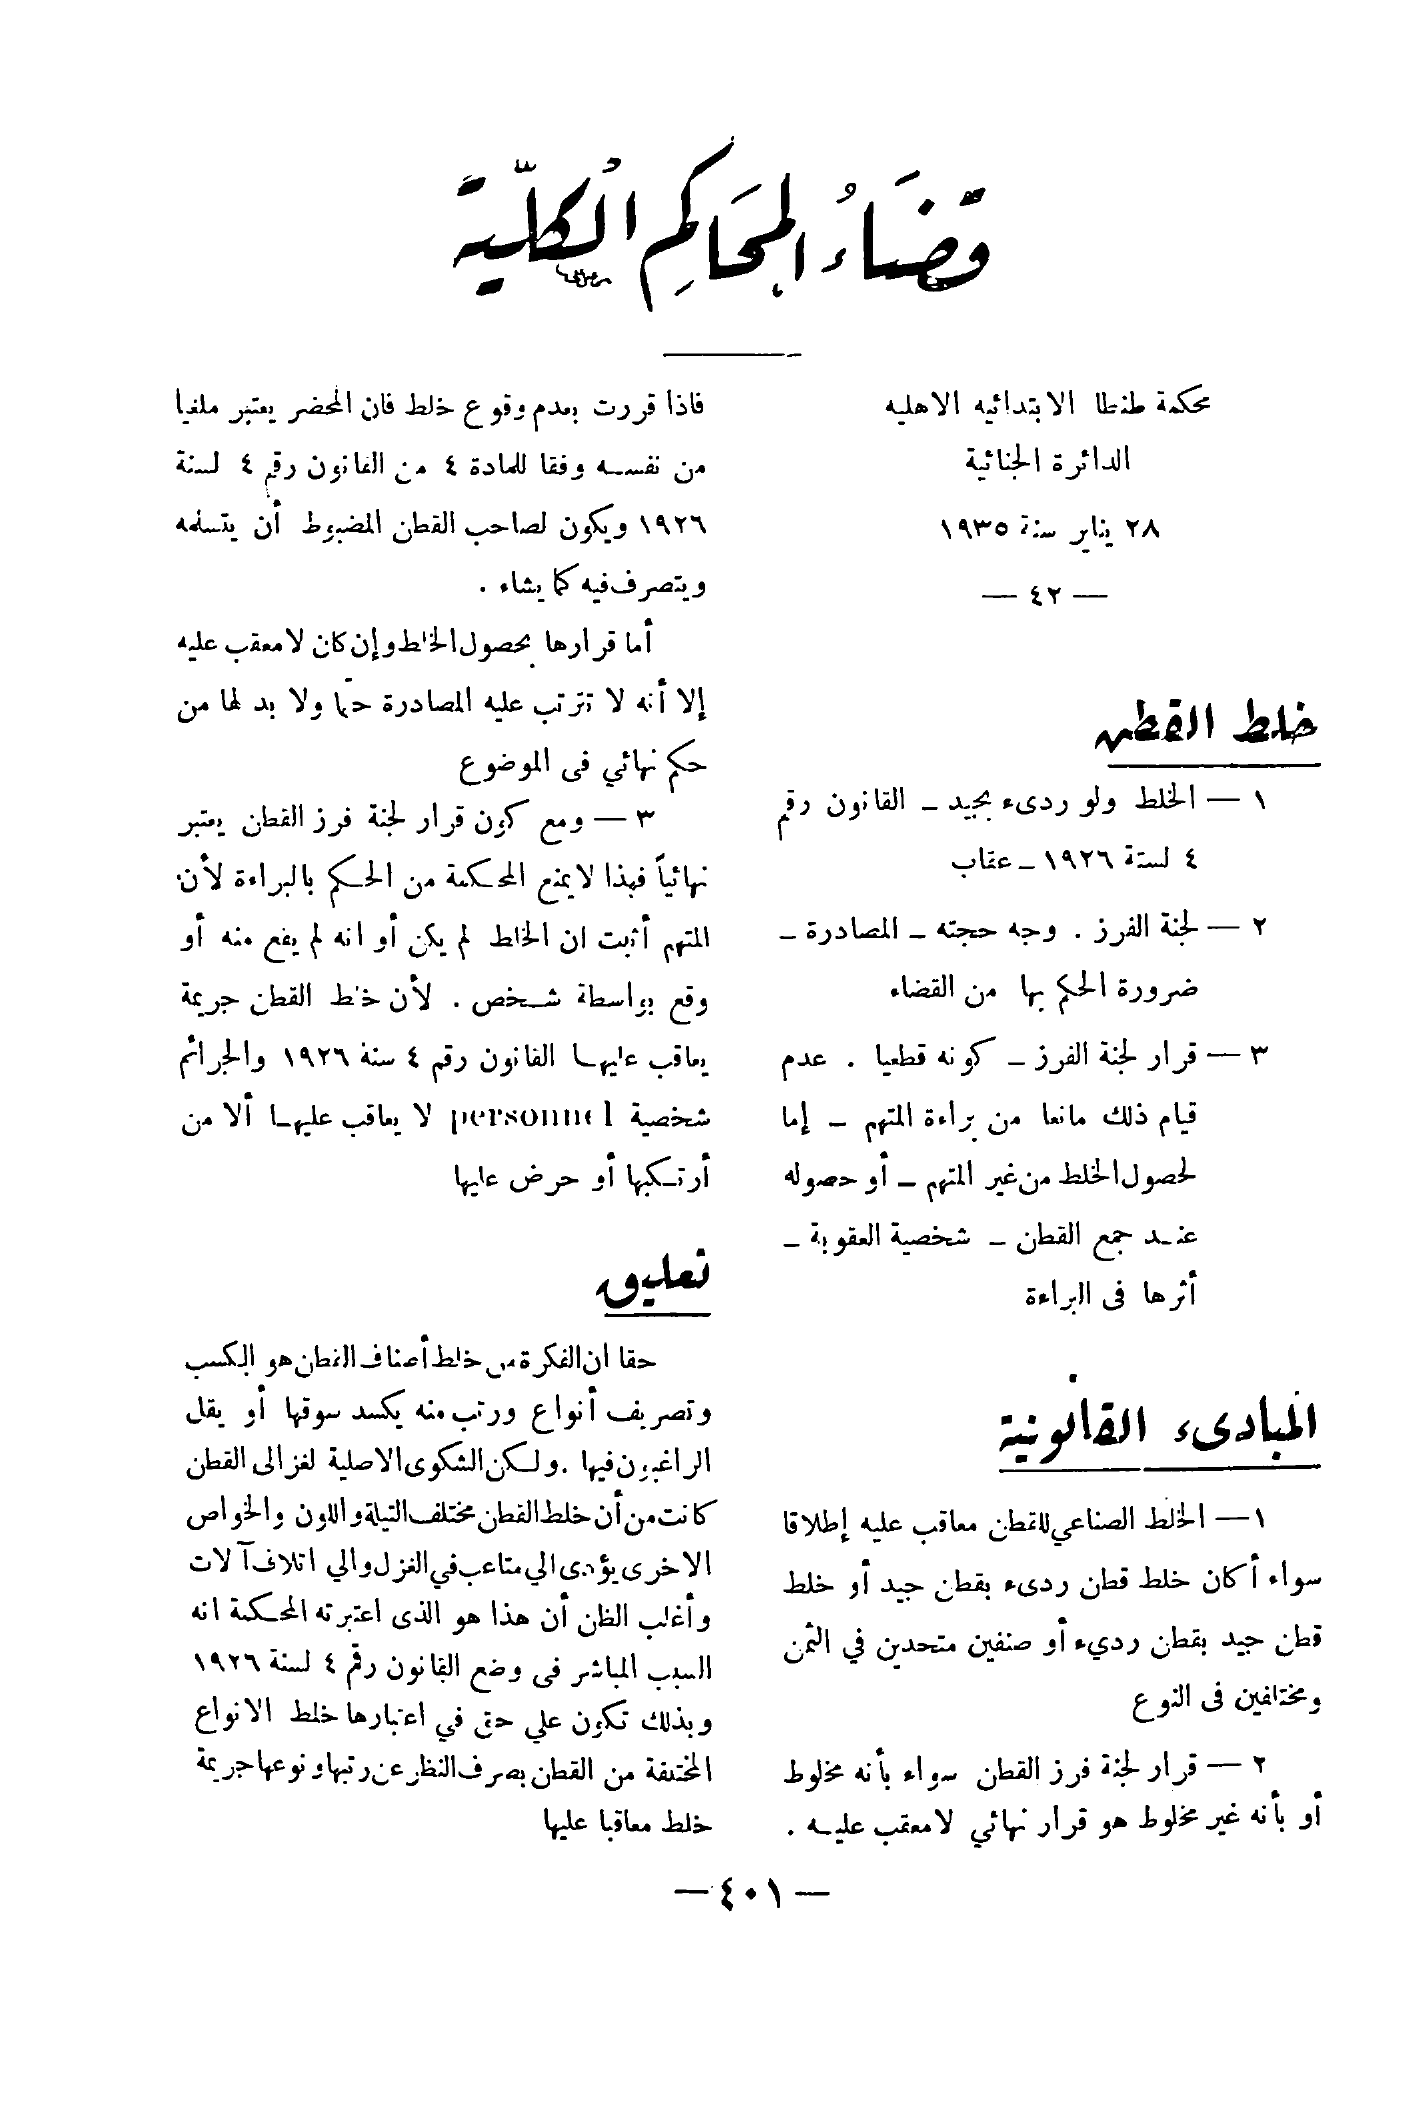 قضاء المحاكم الكلية
محكمة طنطا الابتدائيه الاهليه
الدائرة الجنائية
٢٨ يناير سنة ١٩٣٥
— ٤٢ —
خلط القطن
١ — الخلط ولو ردىء بجيد – القانون رقم
٤ لسنة ١٩٢٦ – عقاب
٢ — لجنة الفرز . وجه حجته – المصادرة –
ضرورة الحكم بها من القضاء
٣ — قرار لجنة الفرز – كونه قطعيا . عدم
قيام ذلك مانعا من براءة المتهم – إما
لحصول الخلط من غير المتهم – أو حصوله
عند جمع القطن – شخصية العقوبة –
أثرها فى البراءة
المبادىء القانونية
١ — الخلط الصناعي للقطن معاقب عليه إطلاقا
سواء أكان خلط قطن ردىء بقطن جيد أو خلط
قطن جيد بقطن رديء أو صنفين متحدين في الثمن
ومختلفين فى النوع
٢ — قرار لجنة فرز القطن سواء بأنه مخلوط
أو بأنه غير مخلوط هو قرار نهائي لا معقب عليه .
فاذا قررت بعدم وقوع خلط فان المحضر يعتبر ملغيا
من نفسه وفقا للمادة ٤ من القانون رقم ٤ لسنة
١٩٢٦ ويكون لصاحب القطن المضبوط أن يتسلمه
ويتصرف فيه كما يشاء .
أما قرارها بحصول الخلط وإن كان لا معقب عليه
إلا أنه لا تترتب عليه المصادرة حتما ولا بد لها من
حكم نهائي فى الموضوع
٣ — ومع كون قرار لجنة فرز القطن يعتبر
نهائياً فهذا لا يمنع المحكمة من الحكم بالبراءة لأن
المتهم أثبت ان الخلط لم يكن أو انه لم يقع منه أو
وقع بواسطة شخص . لأن خلط القطن جريمة
يعاقب عليها القانون رقم ٤ سنة ١٩٢٦ والجرائم
شخصية personnel لا يعاقب عليها ألا من
أرتكبها أو حرض عليها
تعليق
حقا ان الفكرة من خلط أصناف القطن هو الكسب
وتصريف أنواع ورتب منه يكسد سوقها أو يقل
الراغبون فيها . ولكن الشكوى الاصلية لغزالى القطن
كانت من أن خلط القطن مختلف التيلة واللون والخواص
الاخرى يؤدى الي متاعب في الغزل والي اتلاف آلات
وأغلب الظن أن هذا هو الذى اعتبرته المحكمة انه
السبب المباشر فى وضع القانون رقم ٤ لسنة ١٩٢٦
وبذلك تكون علي حق في اعتبارها خلط الانواع
المختلفة من القطن بصرف النظر عن رتبها ونوعها جريمة
خلط معاقبا عليها
— ٤٠١ —